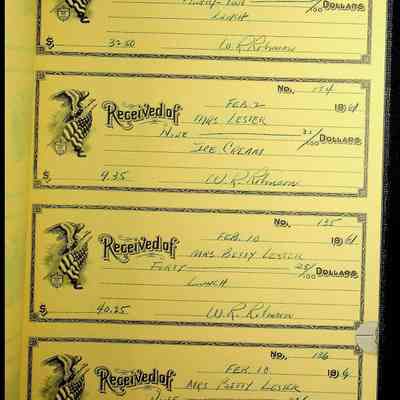 /100 Dollars
Lunch
$ 32.50 W. R. Robinson
No. 134
Feb. 2 1961
Received of Mrs Lester
Nine 35/100 Dollars
Ice Cream
$ 9.35 W. R. Robinson
No. 135
Feb. 10 1961
Received of Mrs Betty Lester
Forty 25/100 Dollars
Lunch
$ 40.25 W. R. Robinson
No. 136
Feb. 10 196
Received of Mrs Betty Lester